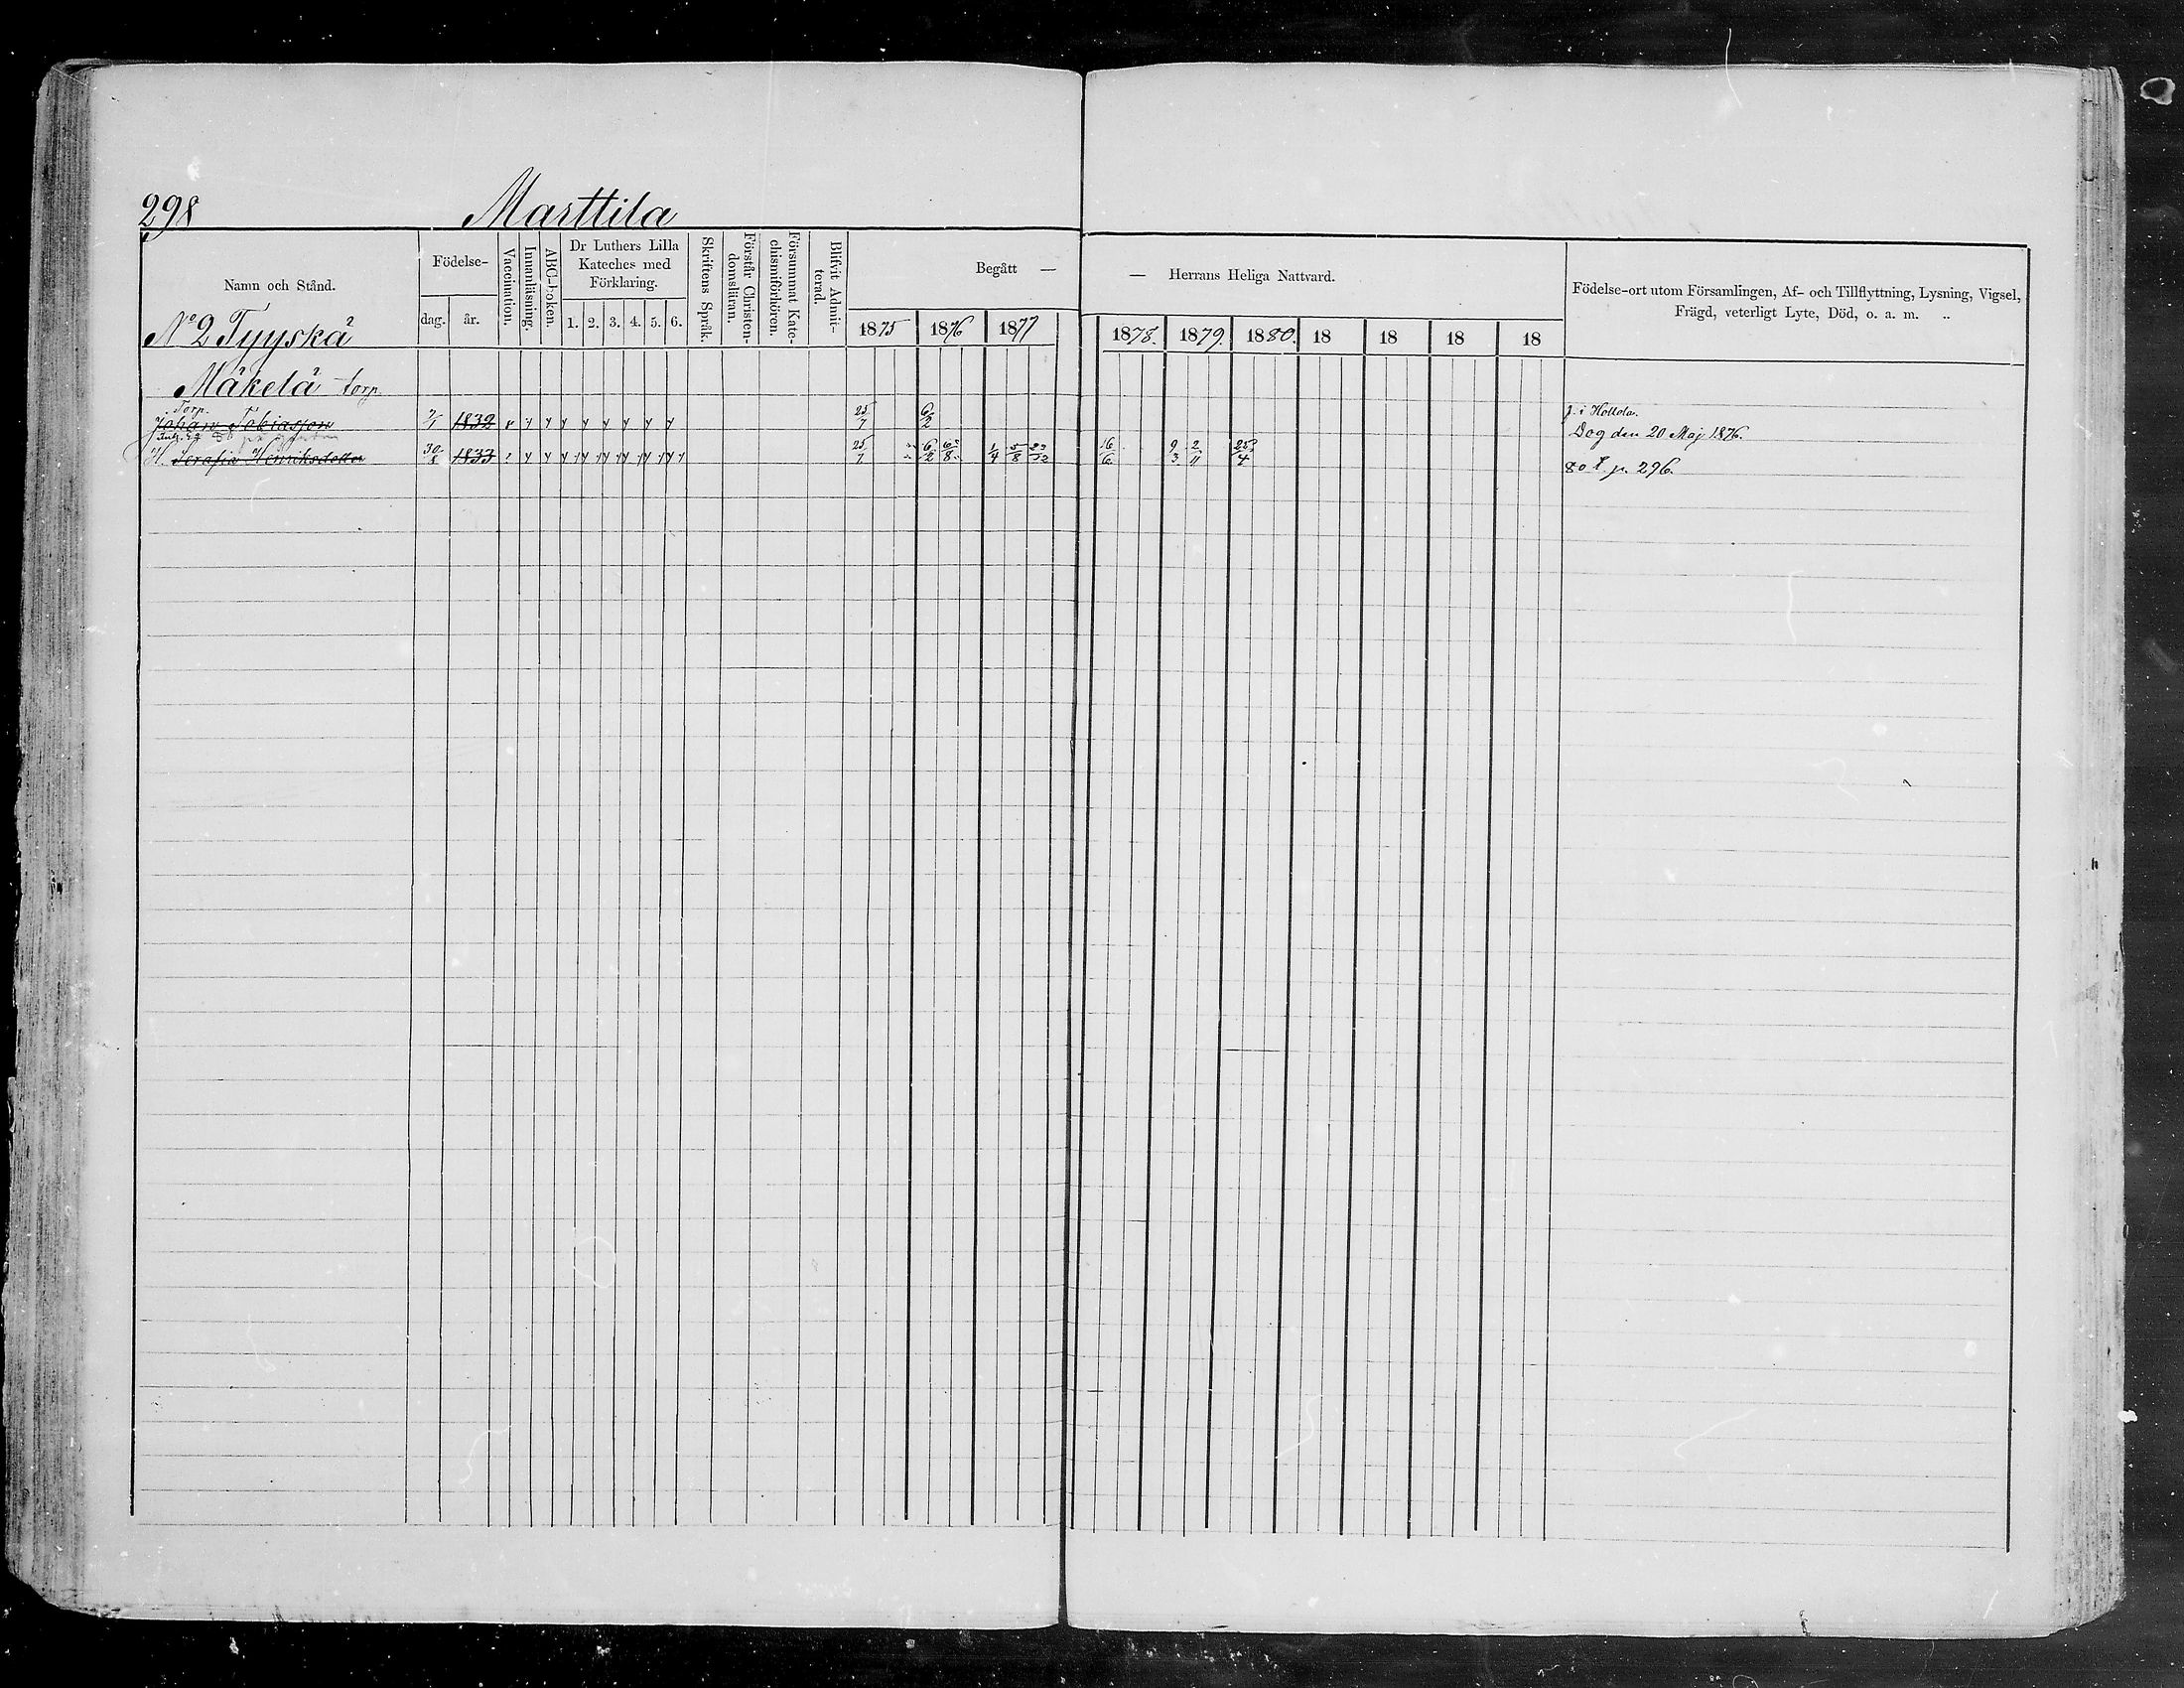 298 Marttila
Namn och Stånd.
Födelse-
dag. år.
Vaccination.
Innanläsning.
ABC-boken.
Dr Luthers Lilla
Kateches med
Förklaring.
1. 2. 3. 4. 5. 6.
Skriftens Språk.
Förstår Christen-
domsläran.
Försummat Kate-
chismiförhören.
Blifvit Admit-
terad.
Begått —
— Herrans Heliga Nattvard.
1875 1876 1877 1878. 1879. 1880. 18 18 18 18
Födelse-ort utom Församlingen, Af- och Tillflyttning, Lysning, Vigsel,
Frägd, veterligt Lyte, Död, o. a. m.
No 2 Tyyskä
Mäkelä torp.
Torp.
Johan Tobiasson 7/1 1832 25/7 6/2 f. i Hollola.
Dog den 20 Maj 1876.
H. Serafia Henriksdotter 30/8 1833 25/7 6/2 1/4 5/8 16/6 9/3 2/11 25/4
80 t. p. 296.